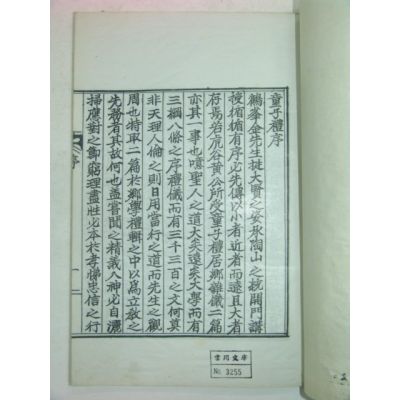 童子禮序
鶴峯金先生挺大賢之姿承陶山之統開門講
授循循有序必先傳以小者近者而遠且大者
存焉若虎谷黃公所受童子禮居鄕雜儀二篇
亦其一事也噫聖人之道大矣遠矣大學而有
三綱八條之序禮儀而有三千三百之文何莫
非天理人倫之則日用當行之道而先生之觀
周也特取二篇於鄕學禮輯之中以爲立敎之
先務者其故何也盖嘗聞之精義入神必自灑
掃應對之節窮理盡性必本於孝悌忠信之行
序
一
雲岡文庫
No. 3255